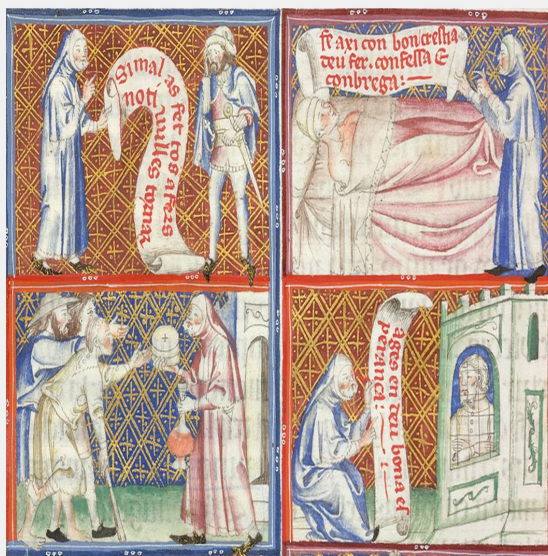 Si mal as fet tos afers
noti vulles tornar
fe axi con bon crestia
deu fer. confessa &
conbrega:
ages en deu bona es
perança: